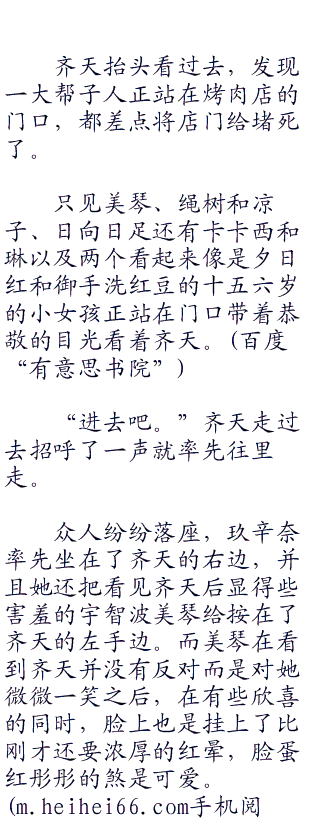 齐天抬头看过去，发现
一大帮子人正站在烤肉店的
门口，都差点将店门给堵死
了。
只见美琴、绳树和凉
子、日向日足还有卡卡西和
琳以及两个看起来像是夕日
红和御手洗红豆的十五六岁
的小女孩正站在门口带着恭
敬的目光看着齐天。(百度
“有意思书院”)
“进去吧。”齐天走过
去招呼了一声就率先往里
走。
众人纷纷落座，玖辛奈
率先坐在了齐天的右边，并
且她还把看见齐天后显得些
害羞的宇智波美琴给按在了
齐天的左手边。而美琴在看
到齐天并没有反对而是对她
微微一笑之后，在有些欣喜
的同时，脸上也是挂上了比
刚才还要浓厚的红晕，脸蛋
红彤彤的煞是可爱。
(m.heihei66.com手机阅